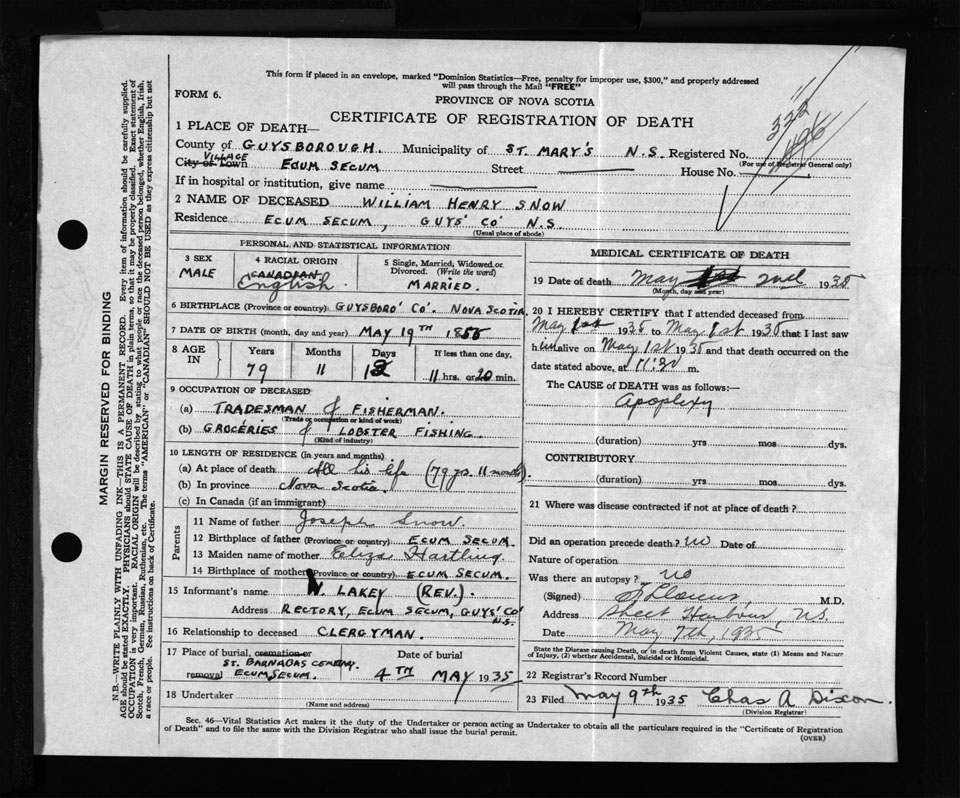 This form if placed in an envelope, marked "Dominion Statistics—Free, penalty for improper use, $300," and properly addressed
will pass through the Mail "FREE"
FORM 6.
PROVINCE OF NOVA SCOTIA
CERTIFICATE OF REGISTRATION OF DEATH
332
496
1 PLACE OF DEATH—
County of GUYSBOROUGH. Municipality of ST. MARY'S N.S. Registered No.
(For use of Registrar General only)
City or Town VILLAGE ECUM SECUM Street House No.
If in hospital or institution, give name
2 NAME OF DECEASED WILLIAM HENRY SNOW
Residence ECUM SECUM, GUYS' CO' N.S.
(Usual place of abode)
PERSONAL AND STATISTICAL INFORMATION
3 SEX
MALE
4 RACIAL ORIGIN
CANADIAN
English
5 Single, Married, Widowed or
Divorced. (Write the word)
MARRIED.
6 BIRTHPLACE (Province or country) GUYSBORO' CO'. NOVA SCOTIA
7 DATE OF BIRTH (month, day and year) MAY 19TH 1855
8 AGE IN
Years
79
Months
11
Days
13
If less than one day,
11 hrs. or 20 min.
9 OCCUPATION OF DECEASED
(a) TRADESMAN & FISHERMAN.
(Trade or occupation or kind of work)
(b) GROCERIES & LOBSTER FISHING.
(Kind of industry)
10 LENGTH OF RESIDENCE (in years and months)
(a) At place of death All his life (79 yrs. 11 months)
(b) In province Nova Scotia.
(c) In Canada (if an immigrant)
Parents
11 Name of father Joseph Snow.
12 Birthplace of father (Province or country) ECUM SECUM.
13 Maiden name of mother Eliza Hartling
14 Birthplace of mother (Province or country) ECUM SECUM.
15 Informant's name W. LAKEY (REV.)
Address RECTORY, ECUM SECUM, GUYS' CO'
N.S.
16 Relationship to deceased CLERGYMAN.
17 Place of burial, cremation or
removal
ST. BARNABAS CEMETERY.
ECUM SECUM.
Date of burial
4TH MAY 1935
18 Undertaker
(Name and address)
MEDICAL CERTIFICATE OF DEATH
19 Date of death May 2nd 1935
(Month, day and year)
20 I HEREBY CERTIFY that I attended deceased from
May 1st 1935 to May 1st 1935 that I last saw
him alive on May 1st 1935 and that death occurred on the
date stated above, at 11:20 m.
The CAUSE OF DEATH was as follows:—
Apoplexy
(duration) yrs mos dys.
CONTRIBUTORY
(duration) yrs mos dys.
21 Where was disease contracted if not at place of death?
Did an operation precede death? no Date of
Nature of operation
Was there an autopsy? no
(Signed) M.D.
Address Sheet Harbour, N.S.
Date May 7th, 1935
State the Disease causing Death, or in death from Violent Causes, state (1) Means and Nature
of Injury, (2) whether Accidental, Suicidal or Homicidal.
22 Registrar's Record Number
23 Filed May 9th 1935 Chas A Dixon.
(Division Registrar)
Sec. 46—Vital Statistics Act makes it the duty of the Undertaker or person acting as Undertaker to obtain all the particulars required in the "Certificate of Registration
of Death" and to file the same with the Division Registrar who shall issue the burial permit.
(OVER)
MARGIN RESERVED FOR BINDING
N.B.—WRITE PLAINLY WITH UNFADING INK—THIS IS A PERMANENT RECORD. Every item of information should be carefully supplied.
AGE should be stated EXACTLY. PHYSICIANS should STATE CAUSE OF DEATH in plain terms, so that it may be properly classified. Exact statement of
OCCUPATION is very important. RACIAL ORIGIN will be described by stating to what people or race the deceased person belonged, whether English, Irish,
Scotch, French, German, Russian, Ruthenian, etc. The terms "AMERICAN" or "CANADIAN" SHOULD NOT BE USED as they express citizenship but not
a race or people. See instructions on back of Certificate.